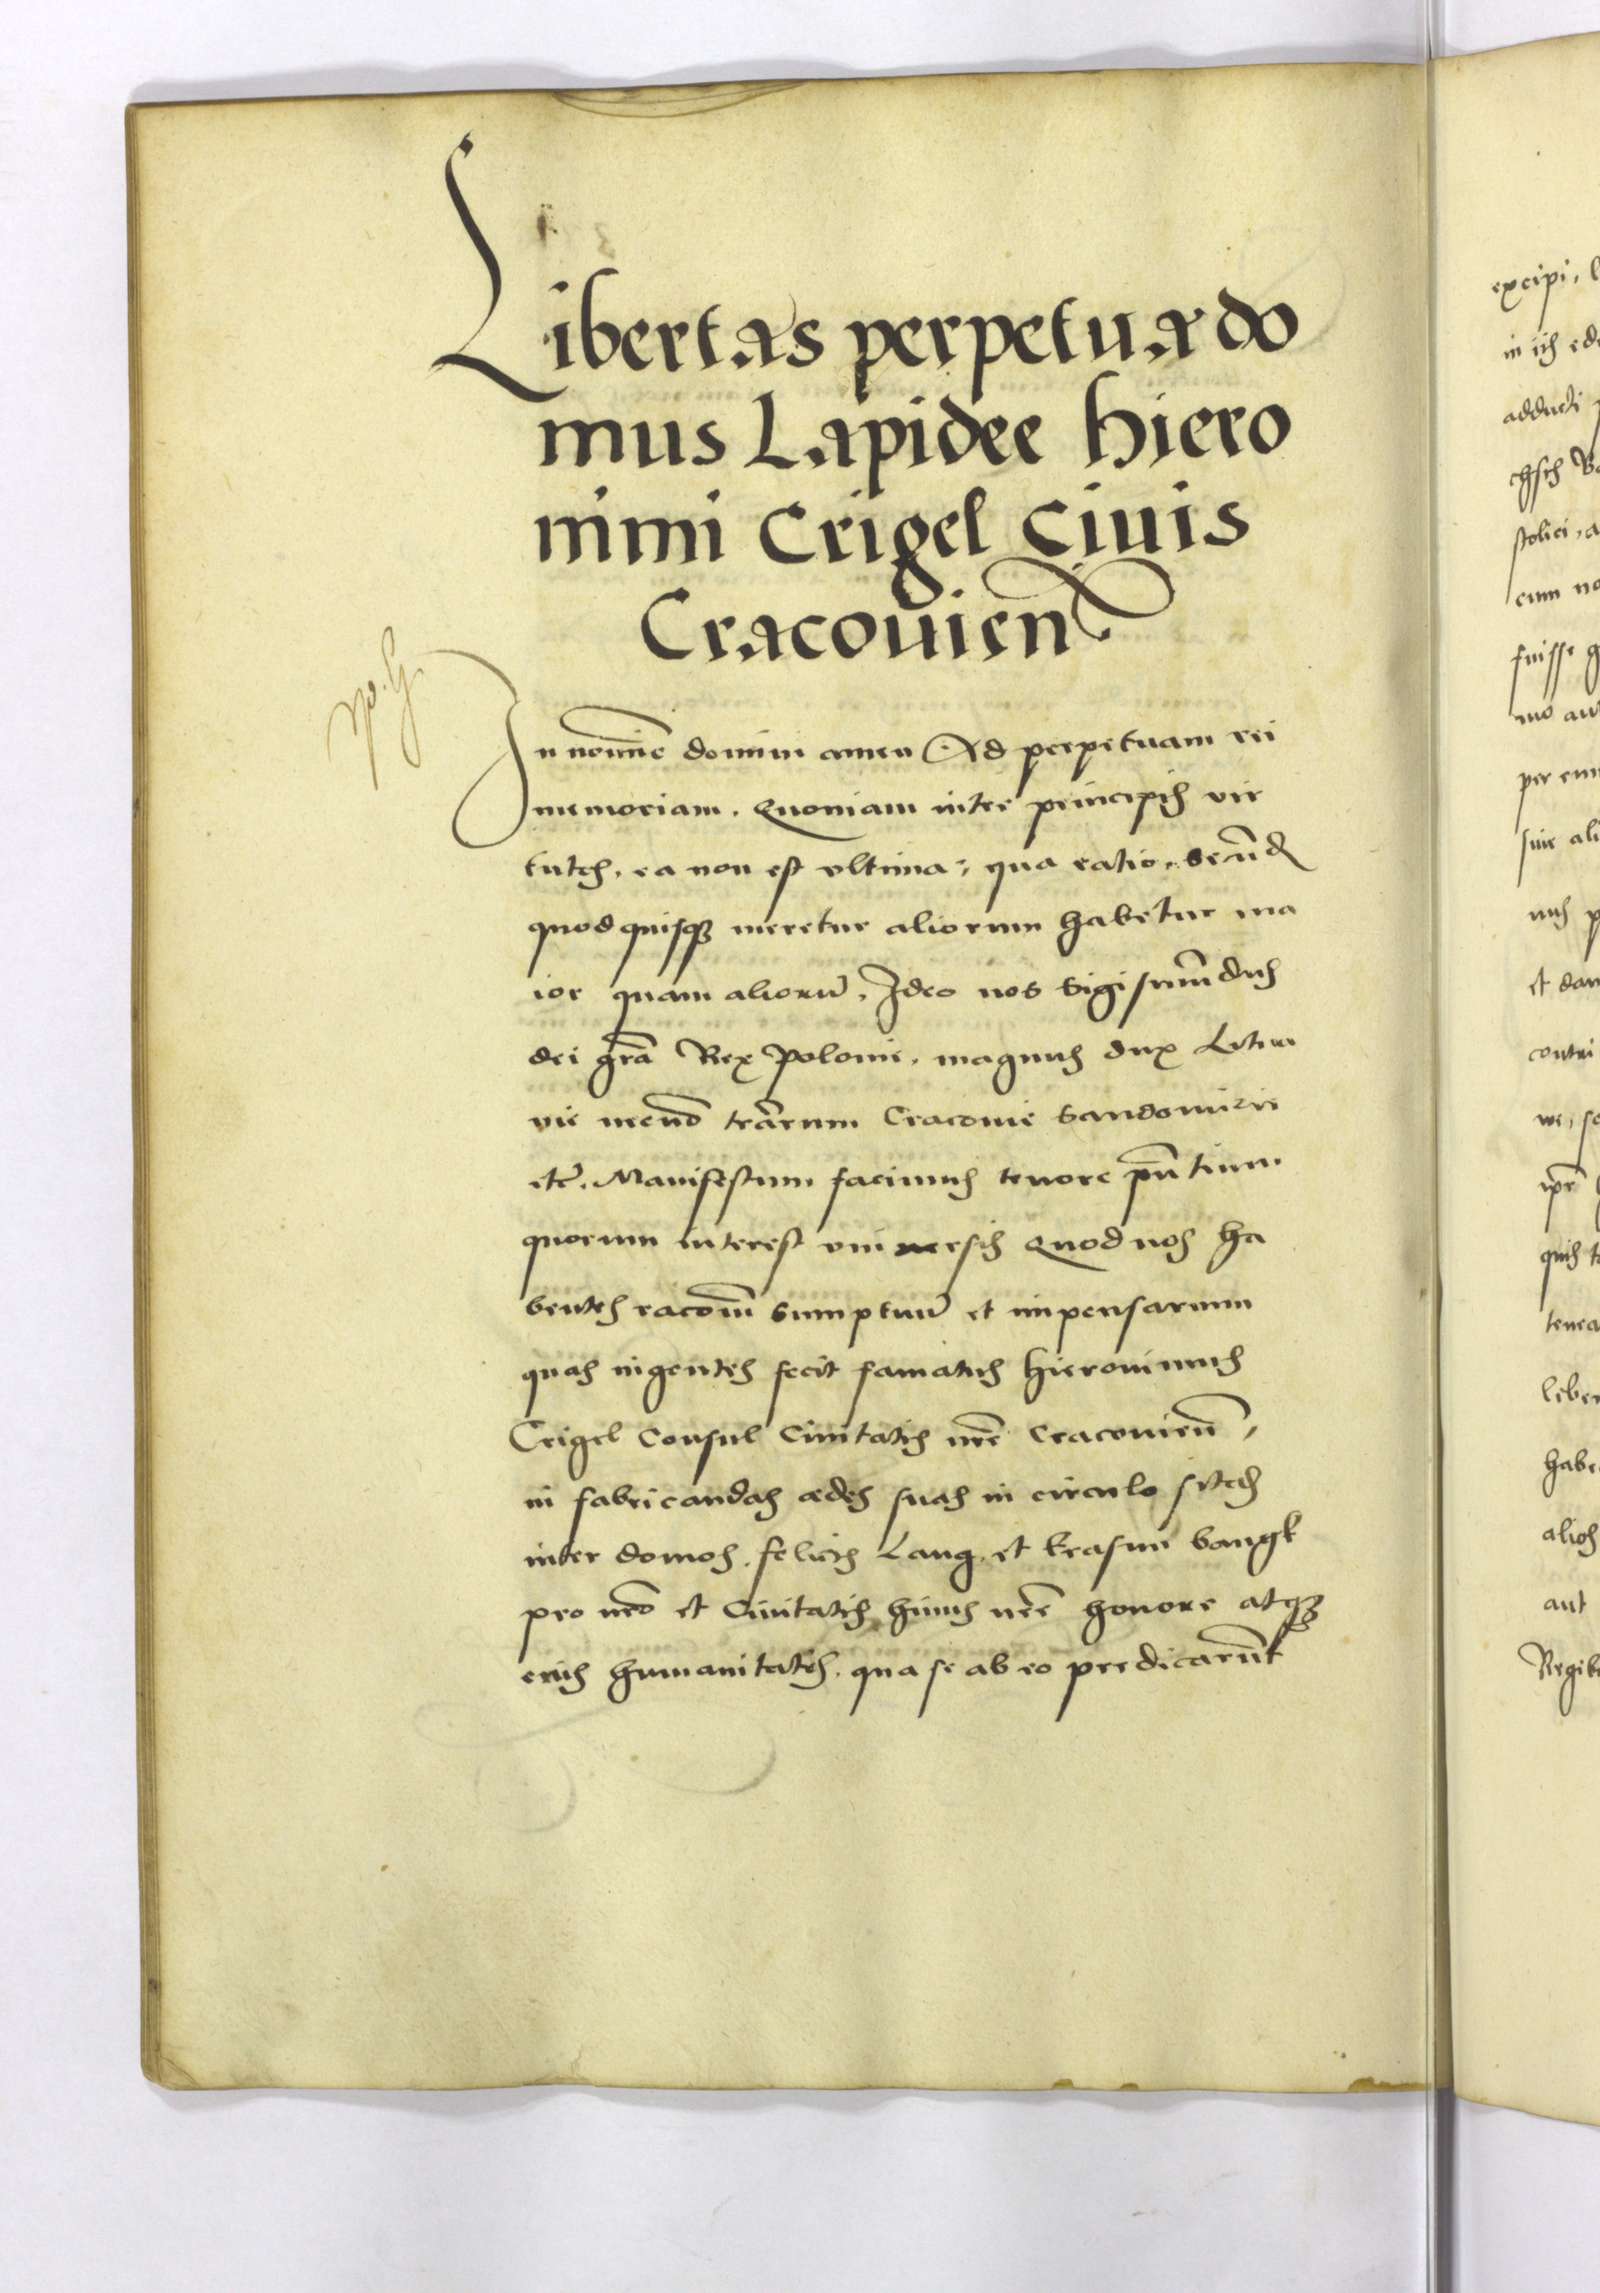 Libertas perpetua do
mus Lapidee Hiero
nimi Crigel Ciuis
Cracouien
In nomīe domini amen Ad perpetuam rei
memoriam. Quoniam inter principis vir
tutes, ea non est vltima, qua ratio, secūd
quod quisq3 meretur aliorum habetur ma
ior quam aliorū. Ideo nos Sigismūdus
dei grā Rex Polonie, magnus dux Litua
nie necnō trārum Cracouie Sandomirie
etc̄. Manifestum facimus tenore pn̄tium
quorum interest vniuersis Quod nos ha
bentes racōm sumptuū et impensarum
quas ingentes fecit famatus Hieronimus
Crigel Consul Ciuitatis nr̄e Cracouien̄,
in fabricandas ædes suas in circulo sitas
inter domos, felicis Lang, et Erasmi bangk
pro nr̄o et Ciuitatis huius nr̄e honore atq3
eius humanitates, qua se ab eo predicarūt
excipi,
in iis
adducti
stolici, a
cum no
fuisse g
mo au
per eum
siue ali
nus p
et dan
contri
quis t
tenea
liber
habe
alios
aut
Regib